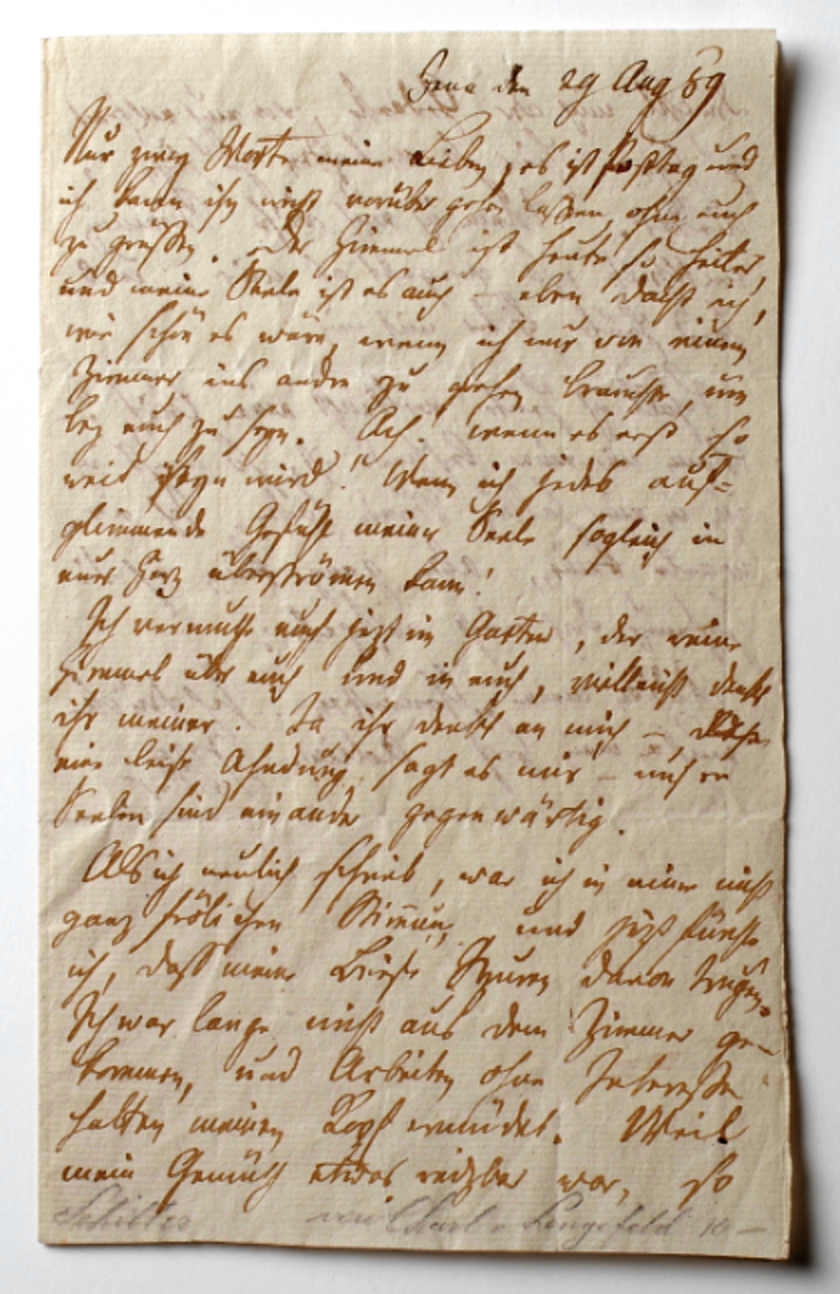 Jena den 29 Aug 89
Nur zwey Worte meine Lieben, es ist Posttag und
ich kann ihn nicht vorüber gehen lassen, ohne euch
zu grüssen. Der Himmel ist heute so heiter,
und meine Seele ist es auch – eben dacht ich,
wie schön es wäre, wenn ich nur von einem
Zimmer ins andre zu gehen brauchte, um
bey euch zu seyn. Ach! wenn es erst so
weit seyn wird! Wenn ich jedes auf=
glimmende Gefühl meiner Seele sogleich in
euer Herz überströmen kann!
Ich vermuthe euch jezt im Garten, der reine
Himmel über euch und in euch, vielleicht denkt
ihr meiner. Ja ihr denkt an mich –
eine leise Ahndung sagt es mir – unsre
Seelen sind einander gegenwärtig.
Als ich neulich schrieb, war ich in einer nicht
ganz frölichen Stimmung und jezt fürchte
ich, daß meine Briefe Spuren davon trugen.
Ich war lange nicht aus dem Zimmer ge-
kommen, und Arbeiten ohne Interesse
hatten meinen Kopf ermüdet. Weil
mein Gemüth etwas reizbar war, so
Schiller an Charl. v. Lengefeld